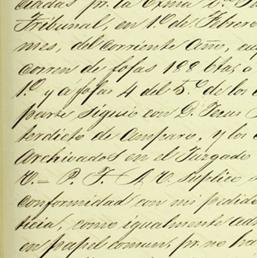 ciadas pr. la Exma
Tribunal, en 1o. de Febrero
mes, del corriente año, cu
corren de fojas 188 bta, a
1o. y a fojas 4 del 5o. de los
parte siguio con D. Jesus
terdicto de amparo, y los
archivados en el Juzgado
V.- P. T. A. V. suplico
conformidad con mi pedido
ticia, como igualmente ad
en papel comun, pr. no ha